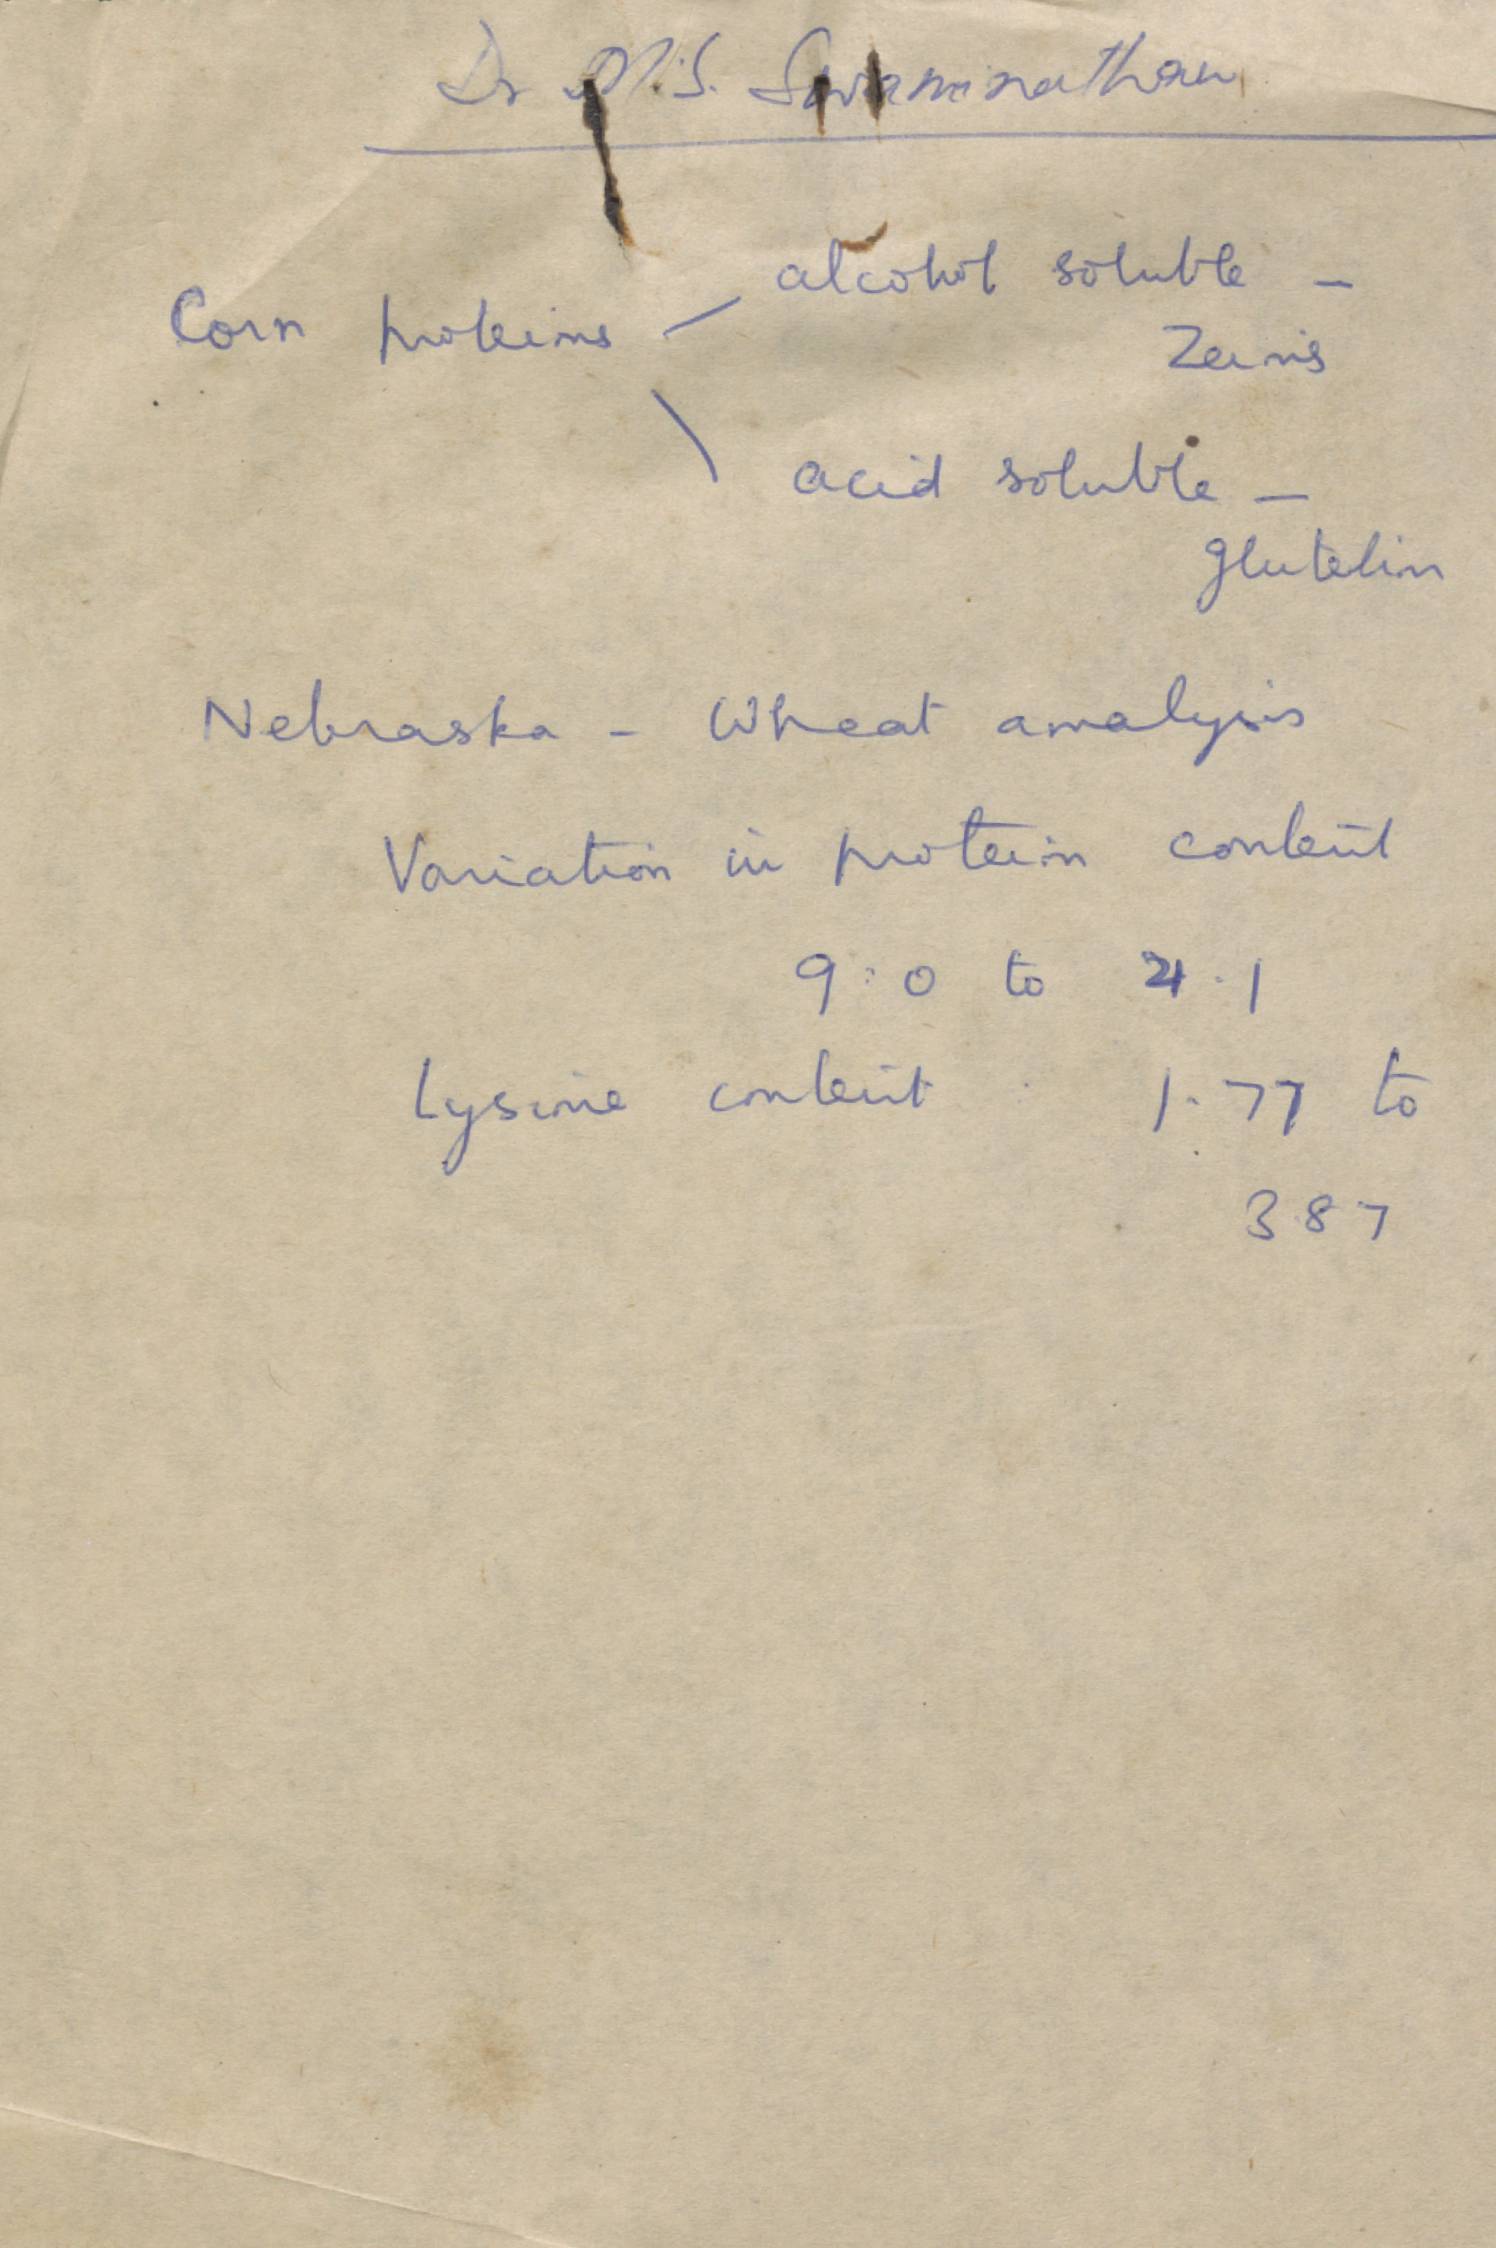 Dr M.S. Swaminathan
Corn proteins
alcohol soluble –
Zeins
acid soluble –
glutelin
Nebraska – Wheat analysis
Variation in protein content
9.0 to 21.1
Lysine content 1.77 to
3.87